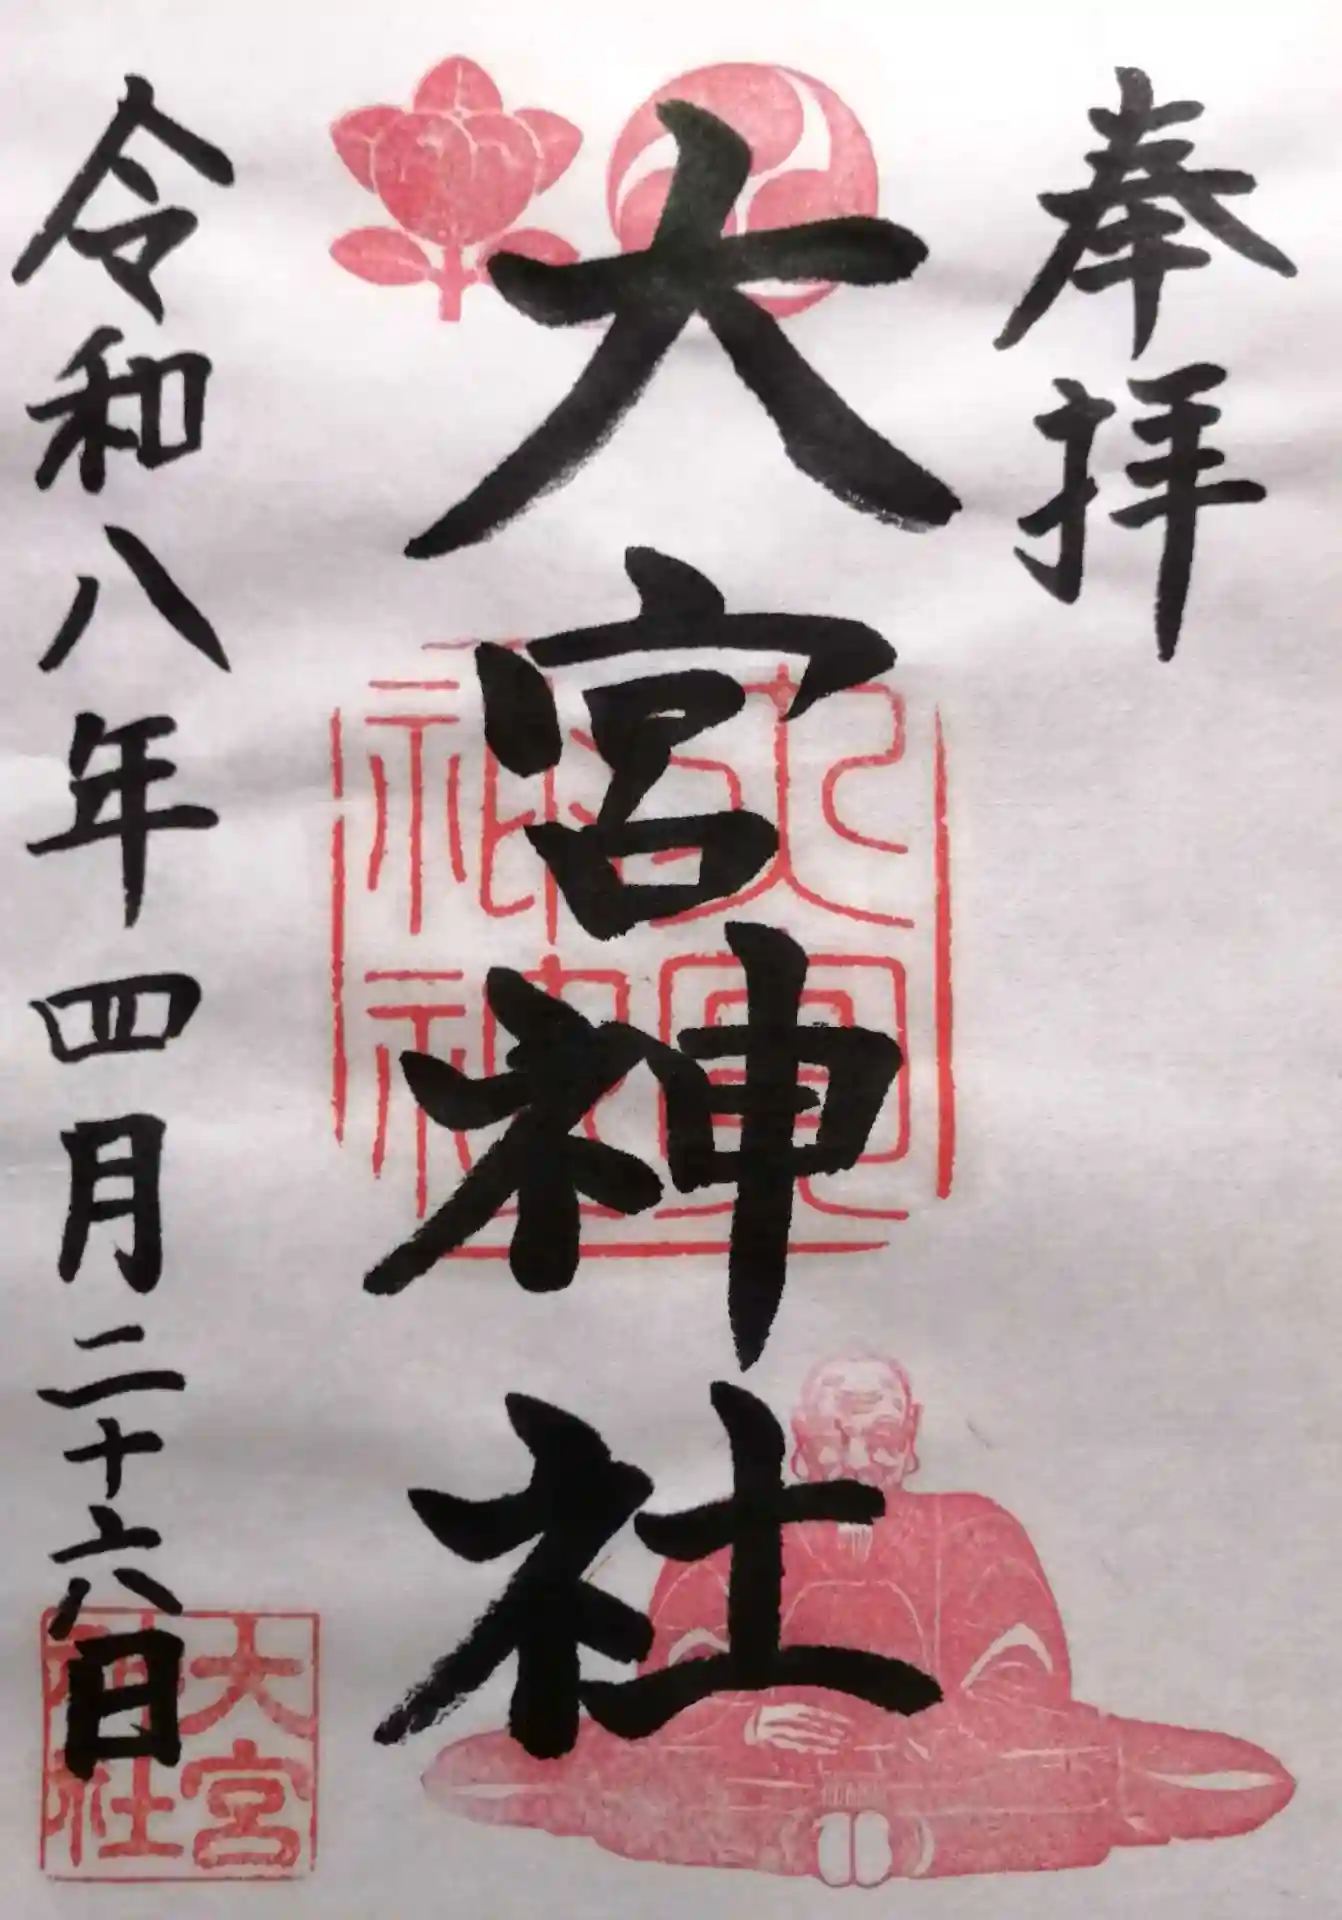 奉拝
大宮神社
令和八年四月二十六日
大宮神社
大宮神社